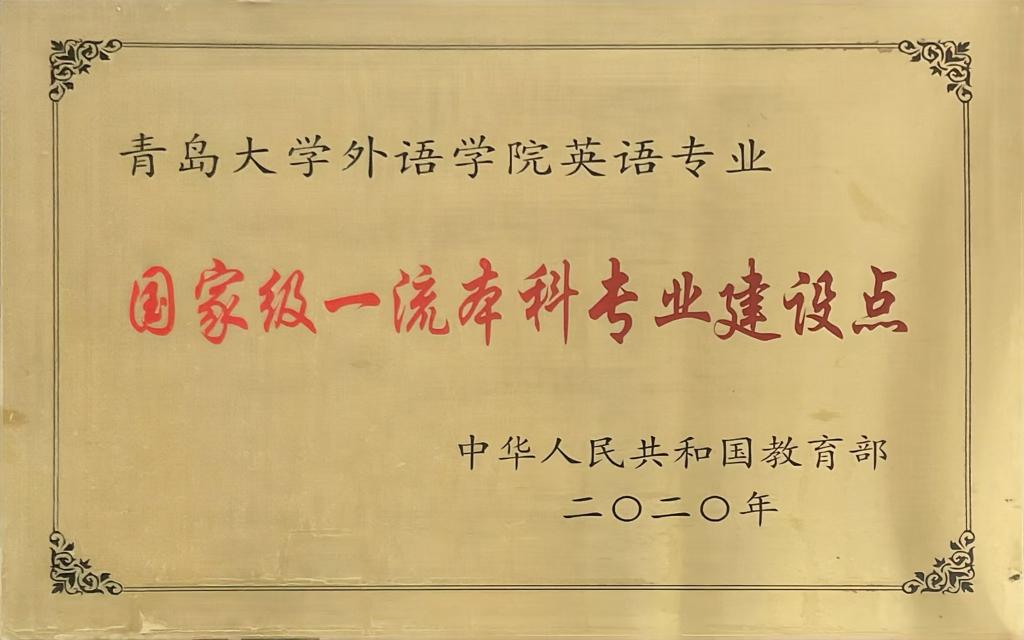 青岛大学外语学院英语专业
国家级一流本科专业建设点
中华人民共和国教育部
二〇二〇年